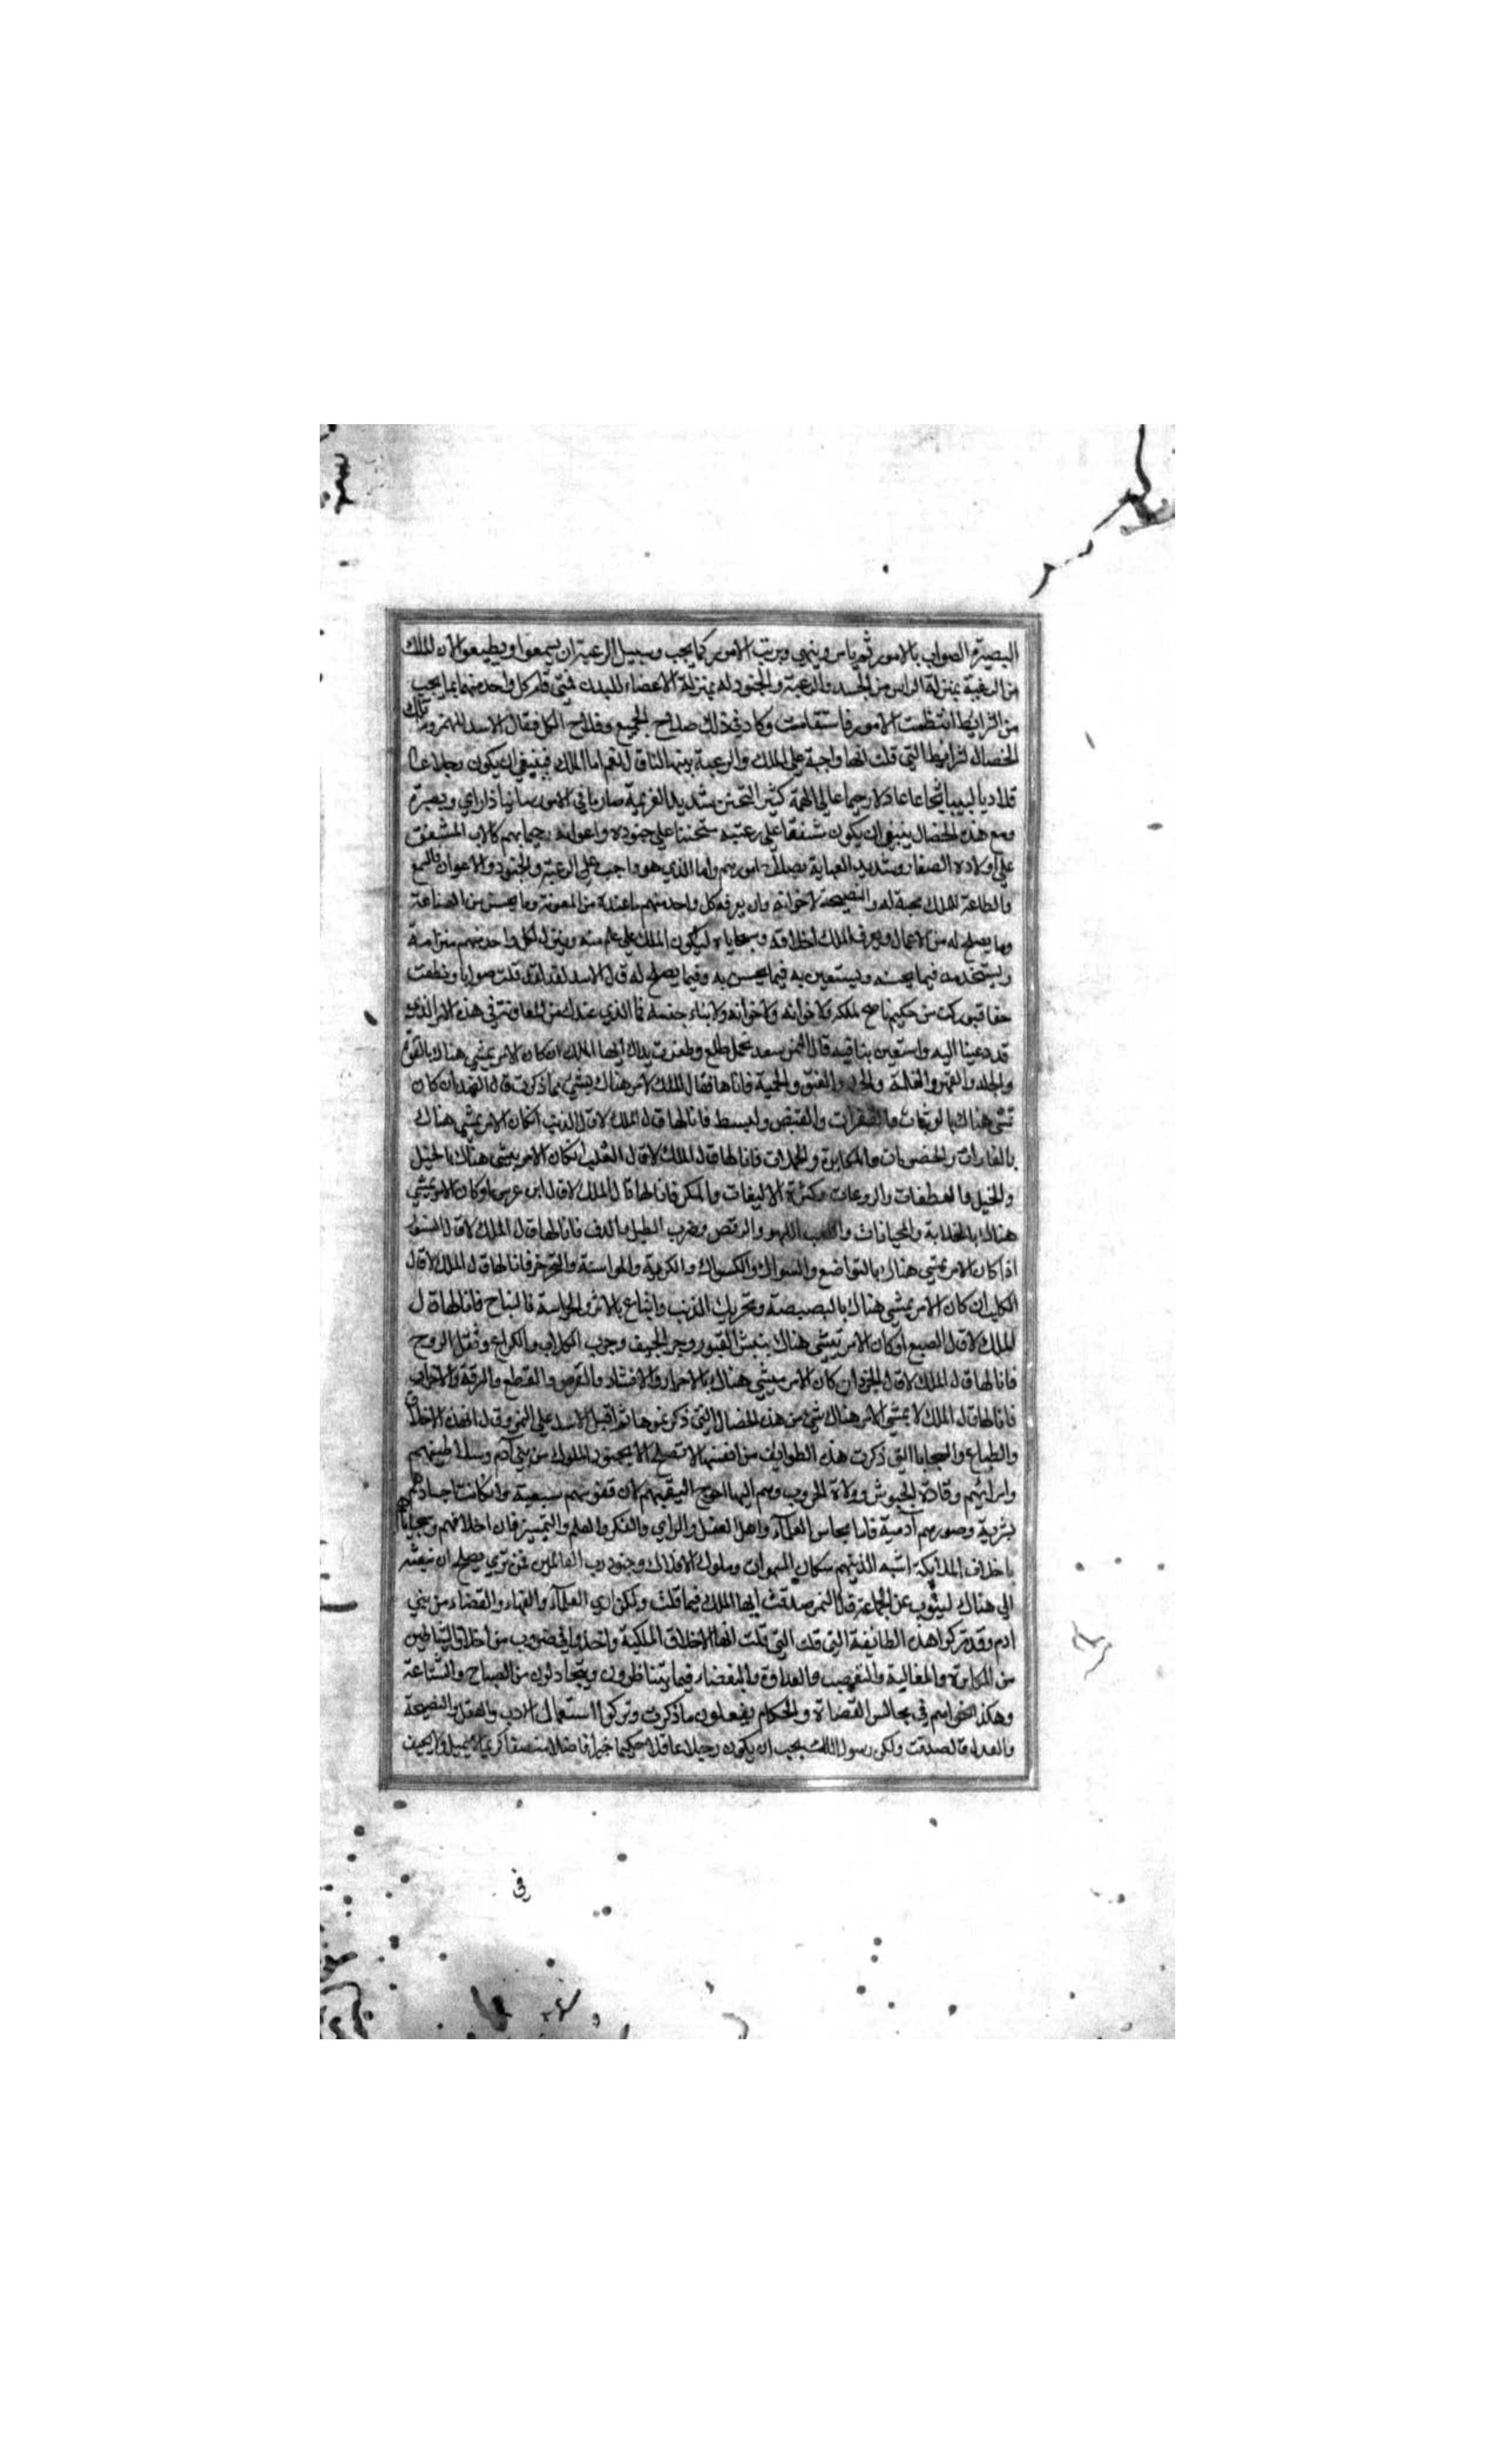 البصيرة الصواب بالامور ثم يامر وينهي ويرتب الامور كما يجب وسبيل الرعية ان يسمعوا ويطيعوا لان الملك
من الرعية بمنزلة الراس من الجسد والرعية والجنود له بمنزلة الاعضاء للبدن فمتى قام كل واحد منهما بما يجب
من الشرايط انتظمت الامور فاستقامت وكان في ذلك صلاح الجميع وفلاح الكل فقال الاسد للنمر وما تلك
الخصال لشرايط التي قلت انها واجبة على الملك والرعية بينها لنا قال نعم اما الملك فينبغي ان يكون رجلا عا
قلا ديبا لبيبا شجاعا عادلا رحيما عالي الهمة كثير التحنن شديد العزيمة صارما في الامور متانيا ذا راي وبصيرة
ومع هذه الخصال ينبغي ان يكون شفقا على رعيته متحننا على جنوده واعوانه رحيما بهم كالاب المشفق
على اولاده الصغار وشديد العناية بصلاح امورهم واما الذي هو واجب على الرعية والجنود والاعوان فالسمع
والطاعة للملك محبة له والنصيحة لاخوانه وان يعرف كل واحد منهم ما عنده من المعونة وما يحسن من الصناعة
وما يصلح له من الاعمال ويعرف الملك اخلاقه وسجاياه ليكون الملك على علم منه وينزل لكل واحد منهم منزلته
ويستخدمه فيما يحسنه ويستعين به فيما يحسن به وفيما يصلح له قال الاسد لقد قلت صوابا ونطقت
حقا فبوركت من حكيم ناصح لملكه ولاخوانه ولابناء جنسه فما الذي عندك من المعاونة في هذه الامر الذي
قد دعينا اليه واستعين بنا فيه قال النمر سعد نجمك وظفرت يداك ايها الملك ان كان الامر يمشي هناك بالقوة
والجلد والقهر والغلبة والحمية فانا لها فقال الملك لا الامر هناك يمشي بما ذكرت قال الفهد ان كان
تمشي هناك بالوثبات والقفزات والقبض والبسط فانا لها قال الملك لا قال الذئب ان كان الامر يمشي هناك
بالغارات والخصومات والمكابرة والحملات فانا لها قال الملك لا قال الثعلب ان كان الامر يمشي هناك بالحيل
والعطفات والروغات وكثرة الالتفات والمكر فانا لها قال الملك لا قال ابن عرس لو كان الامر يمشي
هناك والخيانات واللعب اللهو والرقص وضرب الطبل والدف فانا لها قال الملك لا قال السنور
اذا كان الامر يمشي هناك بالتواضع والسوال والمواسنة فانا لها قال الملك لا قال
الكلب ان كان الامر يمشي هناك بالبصبصة وتحريك الذنب واتباع الاثر والحراسة والنباح فانا لها قال
الملك لا قال الضبع لو كان الامر يمشي هناك بنبش القبور وجر الجيف وجر الكلاب والكراع وثقل الروح
فانا لها قال الملك لا قال الجرذ ان كان الامر يمشي هناك بالاضرار والافساد والقرض والقطع والسرقة
فانا لها قال الملك لا يمشي الامر هناك بشي من هذه الخصال التي ذكرتموها ثم اقبل الاسد على النمر وقال ان هذه الاخلاق
والطباع والسجايا التي ذكرت هذه الطوايف من انفسها لا تصلح الا لجنود الملوك من بني آدم وسلاطينهم
وامرائهم وقادة الجيوش وولاة الحروب وهم اليها احوج اليق بهم لان نفوسهم سبعية وان كانت اجسادهم
بشرية وصورهم آدمية فاما مجالس العلمآء واهل العقل والراي والفكر والعلم والتمييز فان اخلاقهم وسجاياهم
باخلاق الملايكة اشبه الذين هم سكان السموات وملوك الافلاك وجنود رب العالمين فمن تري يصلح ان نبعثه
الى هناك لينوب عن الجماعة قال النمر صدقت ايها الملك فيما قلت ولكن اري العلمآء والفقهاء والقضاة من بني
ادم وقد تركوا هذه الطايفة التي قلت انها الاخلاق الملكية واخذوا في ضروب من اخلاق الشياطين
من المكابرة والمغالبة والتعصب والعداوة والبغضاء فيما يتناظرون ويتجادلون من الصياح والشناعة
وهكذا تراهم في مجالس القضاة والحكام يفعلون ما ذكرت وتركوا استعمال الادب والعقل والنصيحة
والعدل قال صدقت ولكن رسول الملك يجب ان يكون رجلا عاقلا حكيما خيرا فاضلا منصفا كريما لا يميل ولا يحيف
في